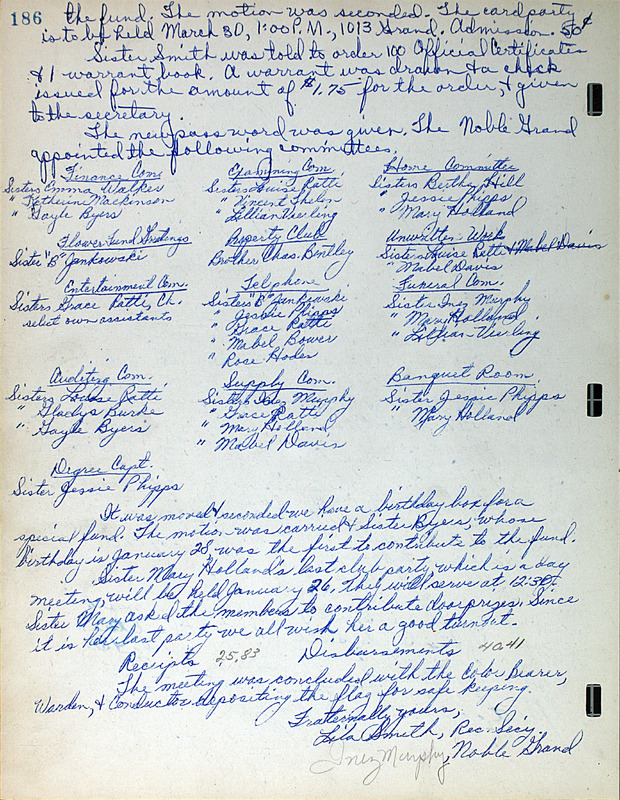 186 the fund. The motion was seconded. The card party
is to be held March 30, 1:00 P.M., 1013 Grand. Admission 50¢
Sister Smith was told to order 100 Official Certificates
& 1 warrant book. A warrant was drawn & a check
issued for the amount of $1.75 for the order, & given
to the secretary.
The new pass word was given. The Noble Grand
appointed the following committees.
Finance Com.
Sisters Emma Walker
" Katherine Mackinson
" Gayle Byers
Examining Com.
Sisters Louise Patti
" Vincent Thelen
" Lillian Vierling
Home Committee
Sisters Berthy Hill
" Jessie Phipps
" Mary Holland
Flower Fund Greetings
Sister "B" Jankowski
Property Club
Brother Chas. Bentley
Unwritten Work
Sisters Louise Patti & Mabel Davis
" Mabel Davis
Entertainment Com.
Sisters Grace Patti, Ch.
select own assistants
Telephone
Sisters "B" Jankowski
" Jessie Phipps
" Grace Patti
" Mabel Bower
" Rose Hoder
Funeral Com.
Sister Inez Murphy
" Mary Holland
" Lillian Vierling
Auditing Com.
Sisters Louise Patti
" Gladys Burke
" Gayle Byers
Supply Com.
Sisters Inez Murphy
" Grace Patti
" Mary Holland
" Mabel Davis
Banquet Room
Sister Jessie Phipps
" Mary Holland
Degree Capt.
Sister Jessie Phipps
It was moved & seconded we have a birthday box for a
special fund. The motion was carried & Sister Byers, whose
birthday is January 28, was the first to contribute to the fund.
Sister Mary Holland's last club party which is a day
meeting, will be held January 26. They will serve at 12:30.
Sister Mary asked the members to contribute door prizes. Since
it is her last party we all wish her a good turnout.
Receipts 25.83 Disbursements 40.41
The meeting was concluded with the Color Bearer,
Warden, & Conductor depositing the flag for safe keeping.
Fraternally yours,
Lila Smith, Rec. Sec'y.
Inez Murphy, Noble Grand